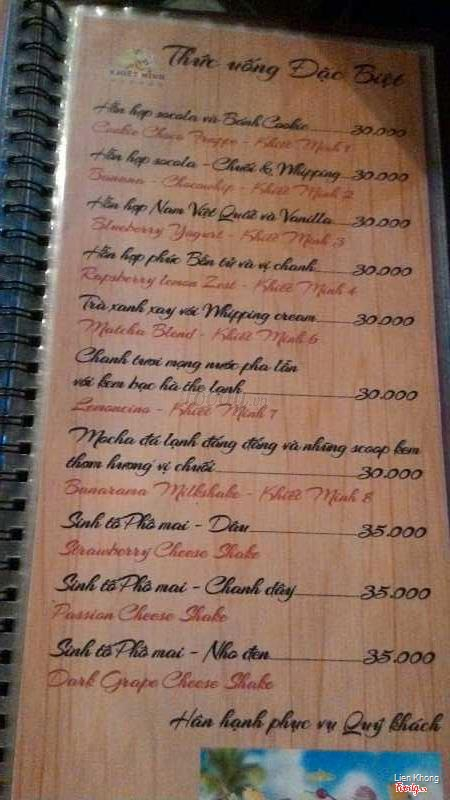 KHIẾT MINH
Thức uống Đặc Biệt
Hỗn hợp socola và Bánh Cookie 30.000
Cookie Choco Frappe - Khiết Minh 1
Hỗn hợp socola - Chuối & Whipping 30.000
Banana - Chocowhip - Khiết Minh 2
Hỗn hợp Nam Việt Quất và Vanilla 30.000
Blueberry Yogurt - Khiết Minh 3
Hỗn hợp phúc Bồn tử và vị chanh 30.000
Rapsberry lemon Zest - Khiết Minh 4
Trà xanh xay với Whipping cream 30.000
Matcha Blend - Khiết Minh 6
Chanh tươi mọng nước pha lẫn
với kem bạc hà the lạnh 30.000
Lemoncino - Khiết Minh 7
Mocha đá lạnh đăng đắng và những scoop kem
thơm hương vị chuối 30.000
Banarama Milkshake - Khiết Minh 8
Sinh tố Phô mai - Dâu 35.000
Strawberry Cheese Shake
Sinh tố Phô mai - Chanh dây 35.000
Passion Cheese Shake
Sinh tố Phô mai - Nho đen 35.000
Dark Grape Cheese Shake
Hân hạnh phục vụ Quý khách
Lien Khong